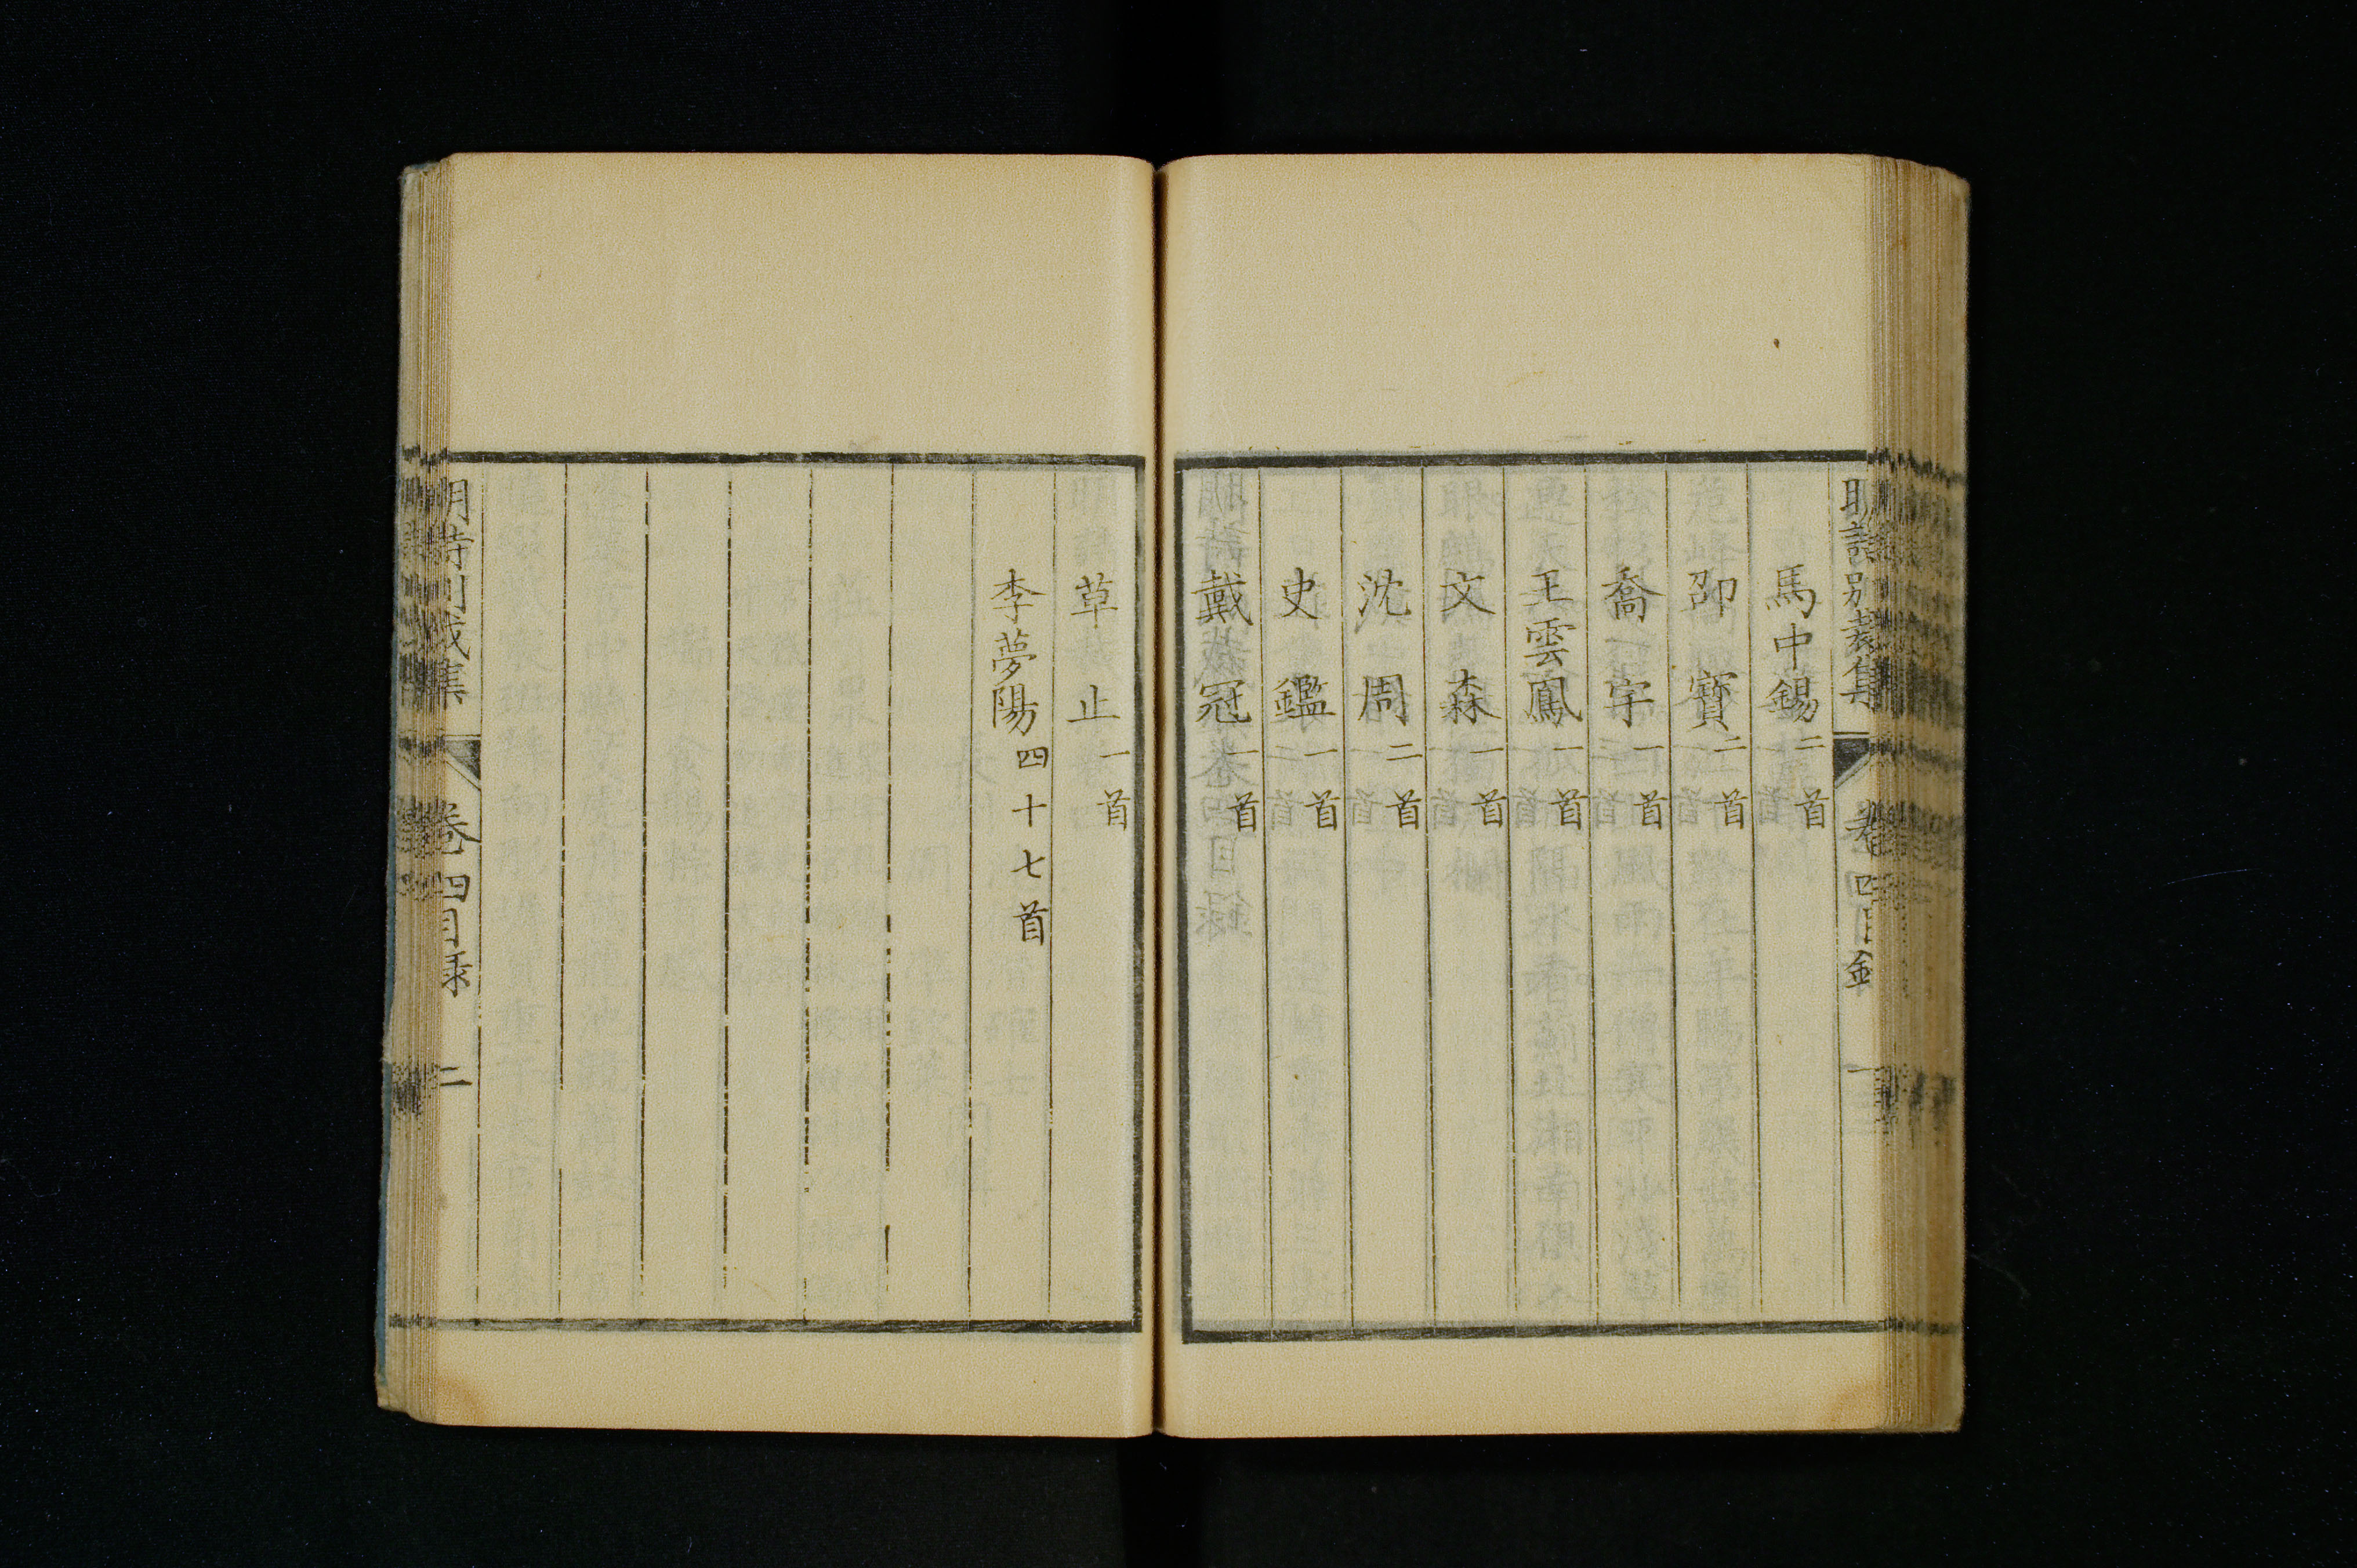 明詩別裁集 卷四目錄
馬中錫二首
邵寶二首
喬宇一首
王雲鳳一首
文森一首
沈周二首
史鑑一首
戴冠一首
草止一首
李夢陽四十七首
明詩別裁集 卷四目錄 二